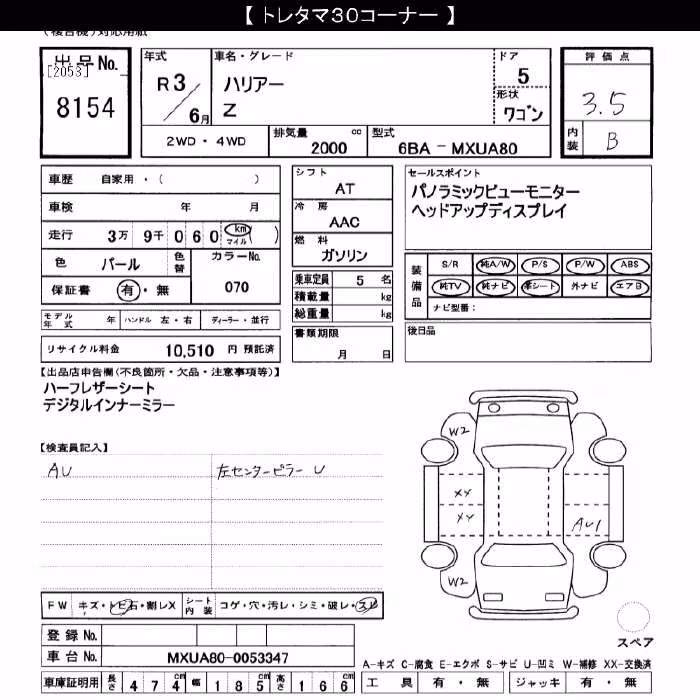 【 トレタマ30コーナー 】
(複合機)対応用紙
出品No.
[2053]
8154
年式
R3/6月
車名・グレード
ハリアー
Z
ドア
5
形状
ワゴン
評価点
3.5
内装
B
2WD・4WD
排気量 cc
2000
型式
6BA - MXUA80
車歴 自家用・( )
車検 年 月
走行 3万 9千 060 (km マイル)
色 パール
色替
カラーNo.
070
保証書 有・無
シフト
AT
冷房
AAC
燃料
ガソリン
乗車定員 5 名
積載量 kg
総重量 kg
セールスポイント
パノラミックビューモニター
ヘッドアップディスプレイ
装備品
S/R 純A/W P/S P/W ABS
純TV 純ナビ 革シート 外ナビ エアB
ナビ型番:
モデル年式 年 ハンドル 左・右 ディーラー・並行
リサイクル料金 10,510 円 預託済
書類期限
月 日
後日品
【出品店申告欄(不良箇所・欠品・注意事項等)】
ハーフレザーシート
デジタルインナーミラー
【検査員記入】
AU 左センターピラー U
W2
XX
XX
AU1
W2
FW キズ・トビ石・割レX
シート内装 コゲ・穴・汚レ・シミ・破レ・スレ
スペア
登録No.
車台No. MXUA80-0053347
A-キズ C-腐食 E-エクボ S-サビ U-凹ミ W-補修 XX-交換済
車庫証明用 長さ 474cm 幅 185cm 高さ 166cm
工具 有・無 ジャッキ 有・無